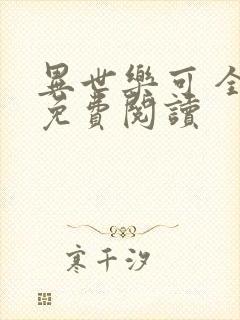 異世樂可 全
免費閱讀
寒千汐